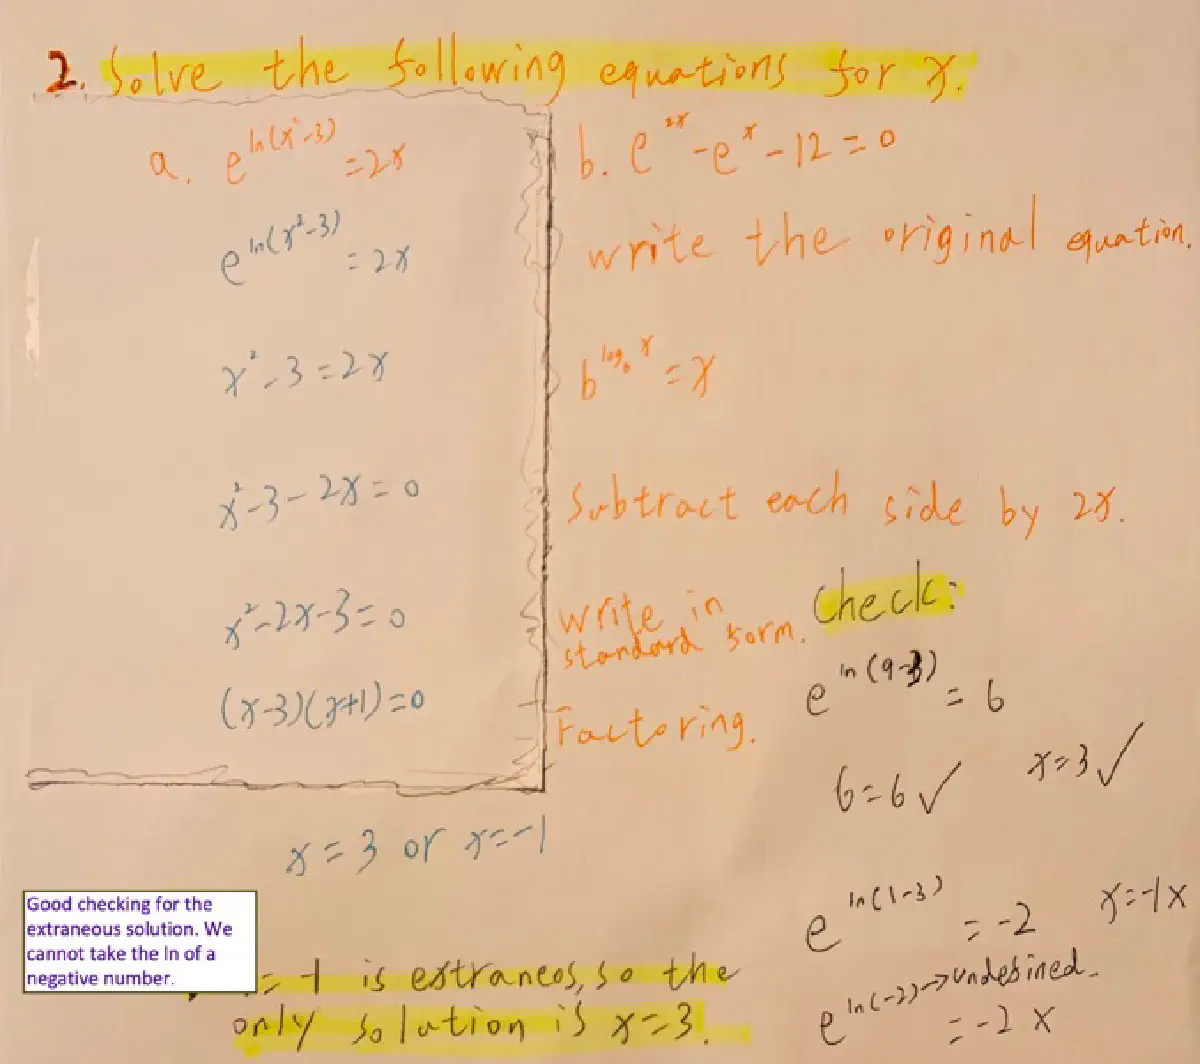 2. Solve the following equations for x.
a. e^ln(x²-3) = 2x
b. e^2x - e^x - 12 = 0
e^ln(x²-3) = 2x
write the original equation.
x² - 3 = 2x
b^log_b x = x
x² - 3 - 2x = 0
Subtract each side by 2x.
x² - 2x - 3 = 0
write in
standard form.
(x-3)(x+1) = 0
Factoring.
x = 3 or x = -1
Check:
e^ln(9-3) = 6
6 = 6 ✓ x = 3 ✓
e^ln(1-3) = -2 x = -1 x
e^ln(-2) → undefined.
= -2 x
Good checking for the
extraneous solution. We
cannot take the ln of a
negative number.
= -1 is extraneos, so the
only solution is x = 3.